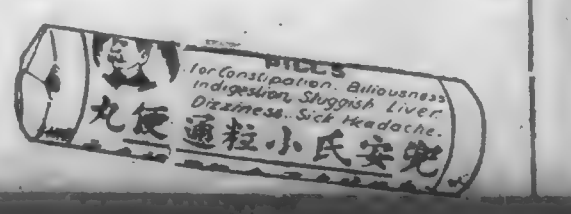 PILLS
for Constipation. Biliousness
Indigestion, Sluggish Liver
Dizziness. Sick Headache.
兜安氏小粒通便丸